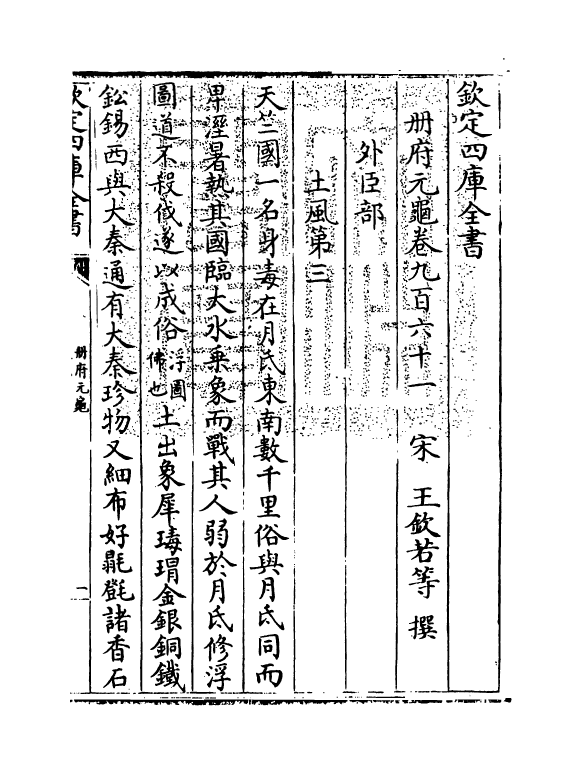 欽定四庫全書
册府元龜卷九百六十一　宋　王欽若等　撰
外臣部
土風第三
天竺國一名身毒在月氏東南數千里俗與月氏同而
卑溼暑熱其國臨大水乗象而戰其人弱於月氏修浮
圖道不殺伐遂以成俗浮圖佛也土出象犀瑇瑁金銀銅鐵
鈆錫西與大秦通有大秦珍物又細布好㲪㲪諸香石
欽定四庫全書
册府元龜
一